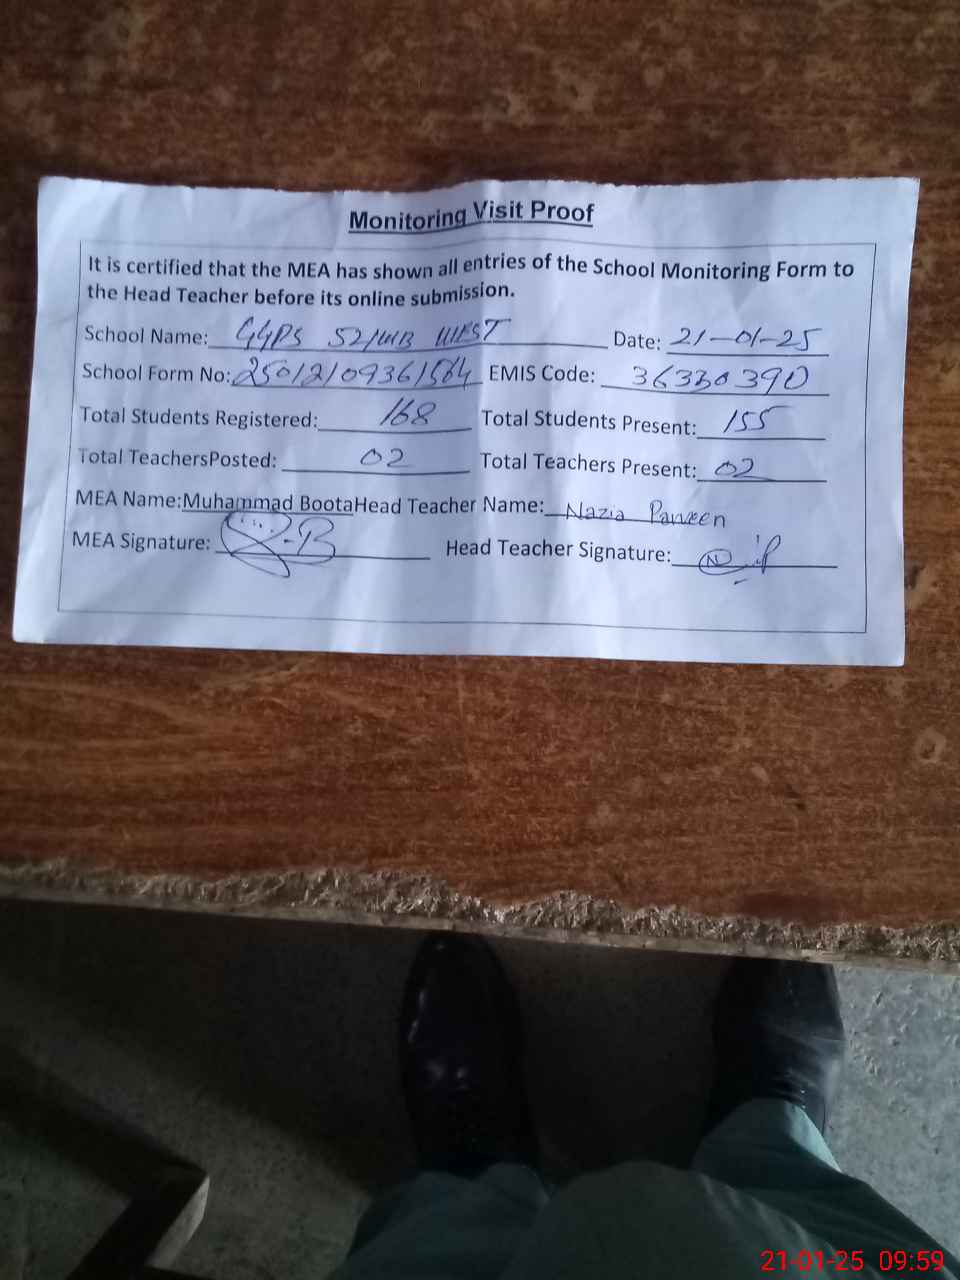 Monitoring Visit Proof
It is certified that the MEA has shown all entries of the School Monitoring Form to
the Head Teacher before its online submission.
School Name: GGPS 52/WB WEST Date: 21-01-25
School Form No: 25012109361564 EMIS Code: 36330390
Total Students Registered: 168 Total Students Present: 155
Total TeachersPosted: 02 Total Teachers Present: 02
MEA Name:Muhammad BootaHead Teacher Name: Nazia Parveen
MEA Signature: Head Teacher Signature:
21-01-25 09:59